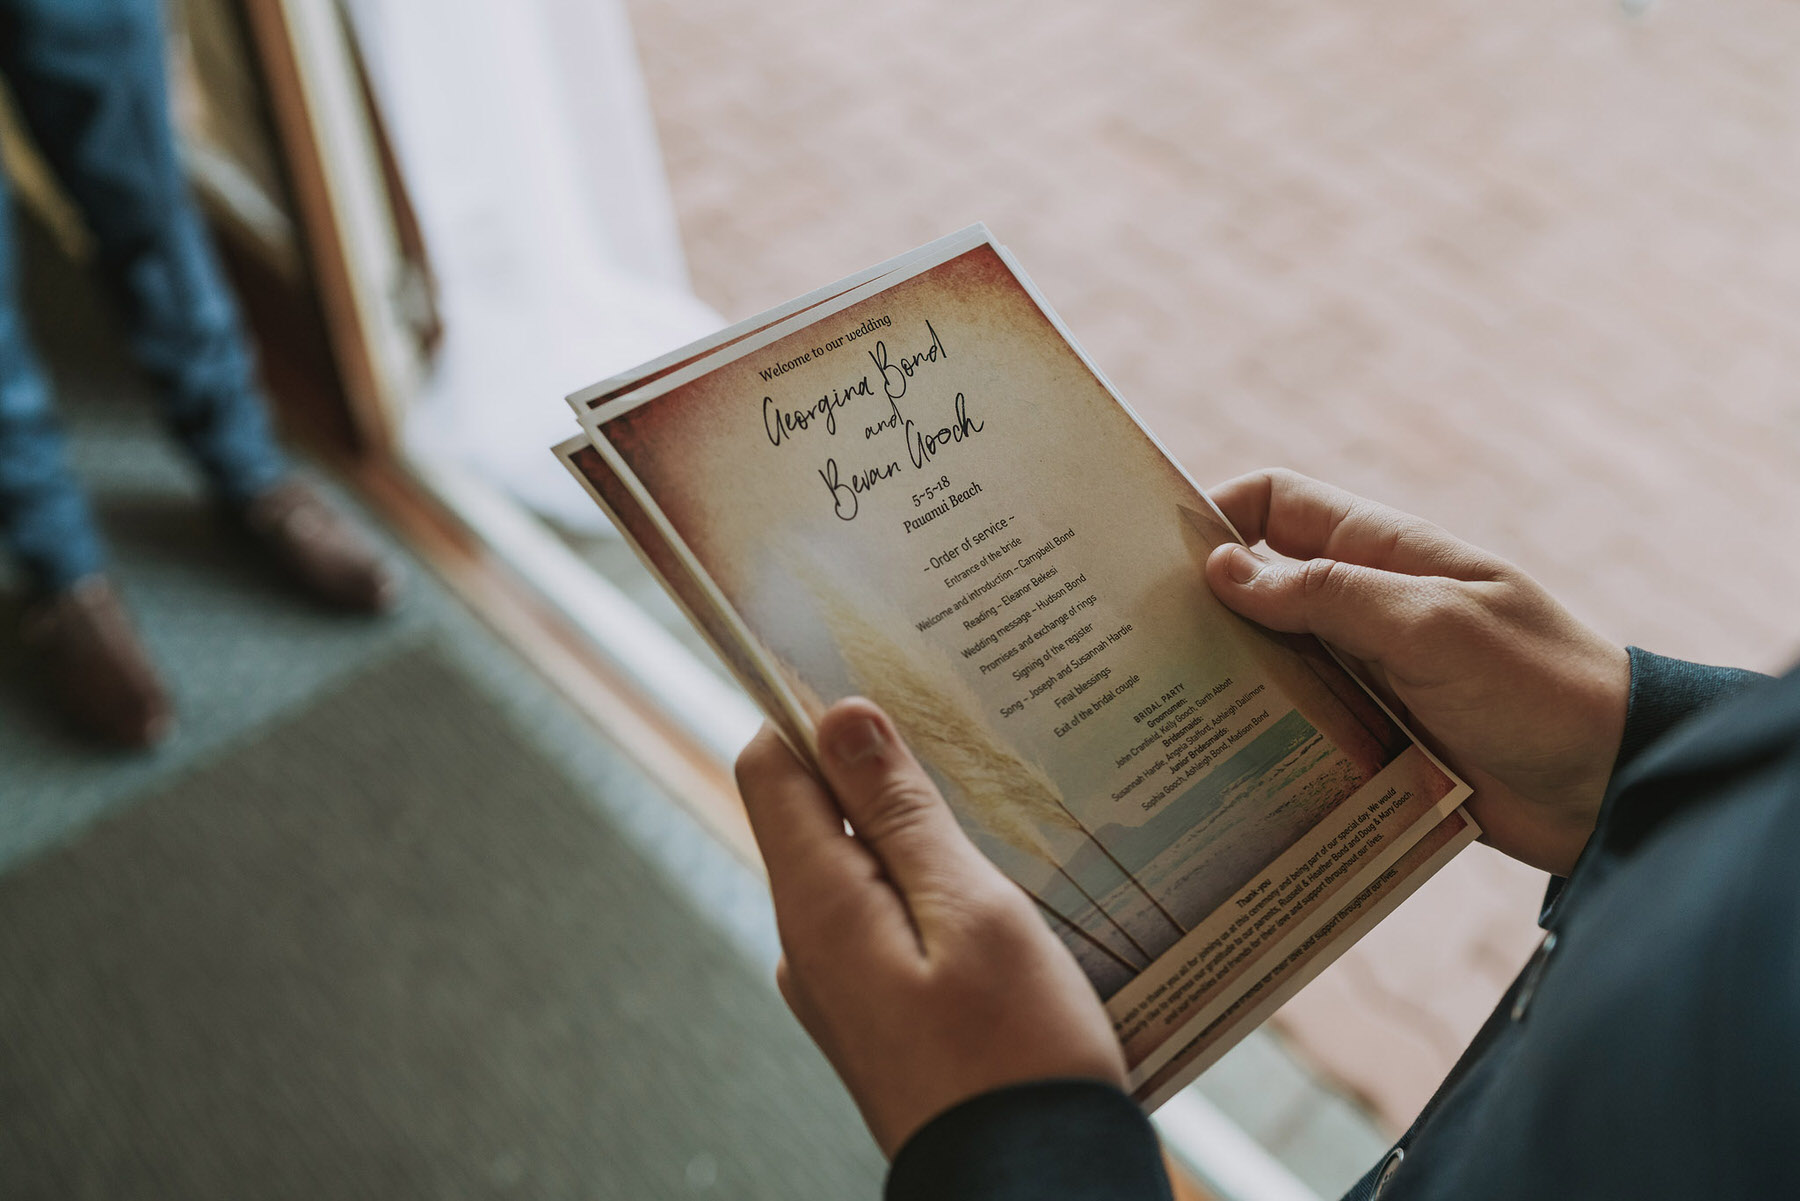 Welcome to our wedding
Georgina Bond
and
Bevan Gooch
5~5~18
Pauanui Beach
~ Order of service ~
Entrance of the bride
Welcome and introduction ~ Campbell Bond
Reading ~ Eleanor Bekesi
Wedding message ~ Hudson Bond
Promises and exchange of rings
Signing of the register
Song ~ Joseph and Susannah Hardie
Final blessings
Exit of the bridal couple
BRIDAL PARTY
Groomsmen:
John Cranfield, Kelly Gooch, Garth Abbott
Bridesmaids:
Susannah Hardie, Angela Stafford, Ashleigh Dallimore
Junior Bridesmaids:
Sophia Gooch, Ashleigh Bond, Madison Bond
Thank-you
wish to thank you all for joining us at this ceremony and being part of our special day. We would
like to express our gratitude to our parents, Russell & Heather Bond and Doug & Mary Gooch,
and our families and friends for their love and support throughout our lives.
for their love and support throughout our lives.